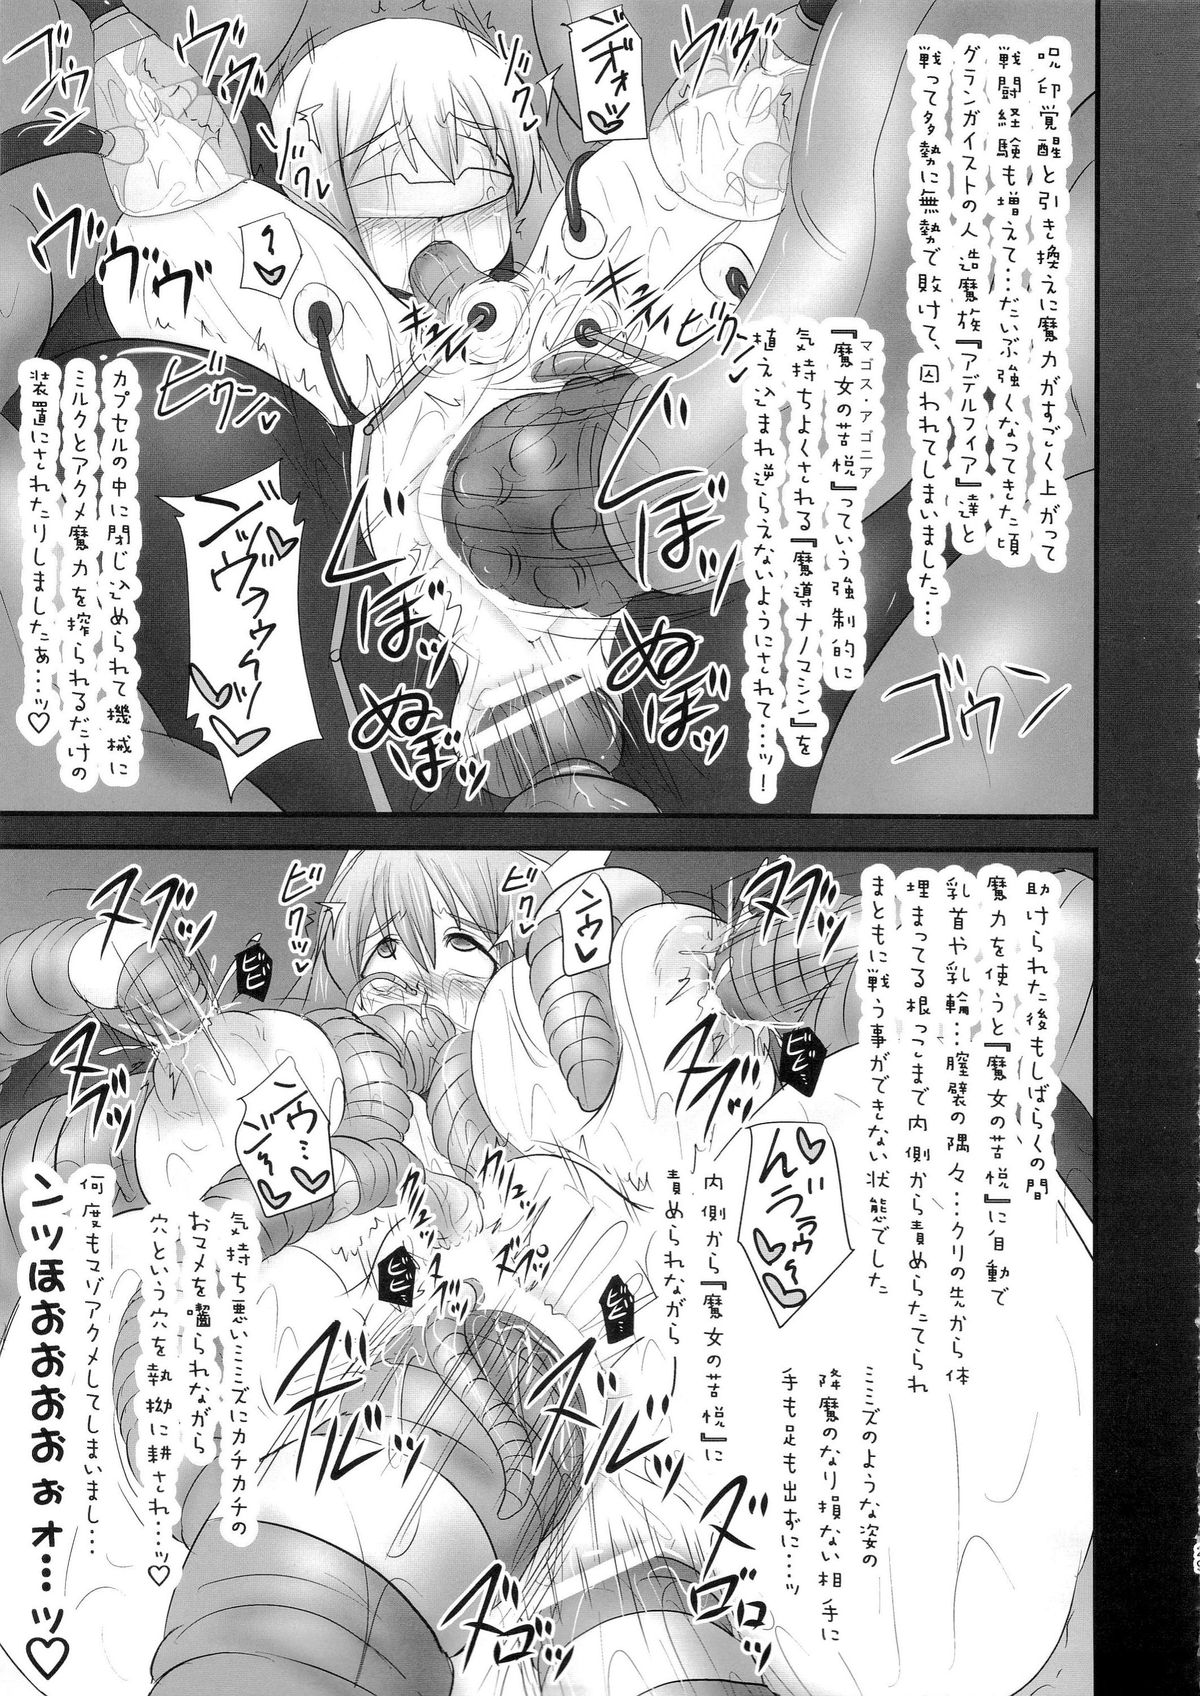 呪印覚醒と引き換えに魔力がすごく上がって
戦闘経験も増えて…だいぶ強くなってきた頃
グランガイストの人造魔族『アデルフィア』達と
戦って多勢に無勢で敗けて、囚われてしまいました…
マゴス・アゴニア
『魔女の苦悦』っていう強制的に
気持ちよくされる『魔導ナノマシン』を
植え込まれ逆らえないようにされて…ッ!
カプセルの中に閉じ込められて機械に
ミルクとアクメ魔力を搾られるだけの
装置にされたりしましたぁ…ッ♡
ゴウン
ゴウン
ヴヴヴ
ビクーン
ビクーン
ぬぼッ
ぬぼぉッ
助けられた後もしばらくの間
魔力を使うと『魔女の苦悦』に自動で
乳首や乳輪…膣襞の隅々…クリの先から体
埋まってる根っこまで内側から責めらたてられ
まともに戦う事ができない状態でした
ミミズのような姿の
降魔のなり損ない相手に
手も足も出ずに…ッ
内側から『魔女の苦悦』に
責められながら
気持ち悪いミミズにカチカチの
おマメを囓られながら
穴という穴を執拗に耕され…ッ♡
何度もマゾアクメしてしまいまし…
ンッほおおおおぉォ…ッ♡
ヌブッ
ヌブッ
ビクッ
ビビッ
ビビッ
ビビッ
ビビッ
ズルルッ
ズルルッ
ズロロッ